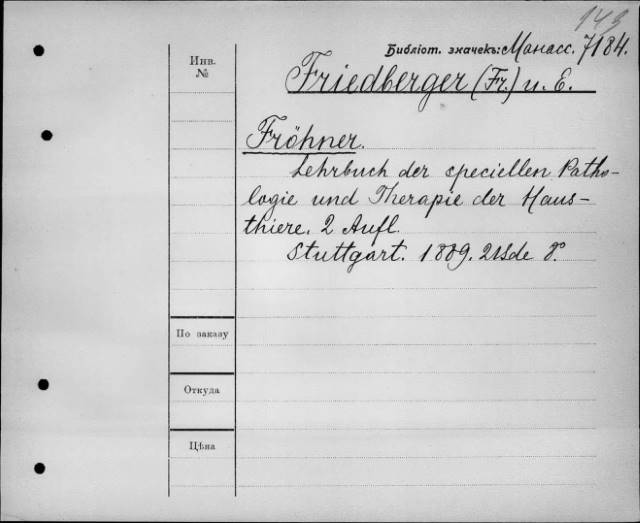 143
Библіот. значекъ: Манасс. 7184.
Инв.
№
Friedberger (Fr.) u. E.
Fröhner.
Lehrbuch der speciellen Patho-
logie und Therapie der Haus-
thiere. 2 Aufl.
Stuttgart. 1889. 2 Bde 8°.
По заказу
Откуда
Цѣна